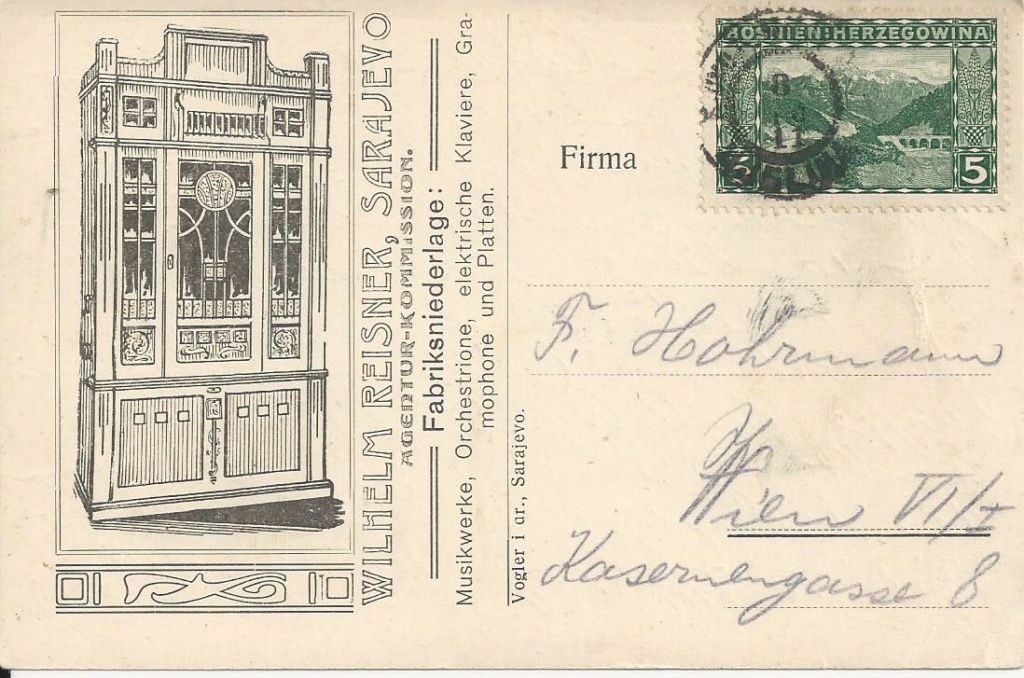 WILHELM REISNER, SARAJEVO
AGENTUR-KOMMISSION.
Fabriksniederlage:
Musikwerke, Orchestrione, elektrische Klaviere, Gra-
mophone und Platten.
Vogler i dr., Sarajevo.
BOSNIEN:HERZEGOWINA
5 5
8
11
Firma
F. Hohrmann
Wien VI/I
Kasernengasse 8